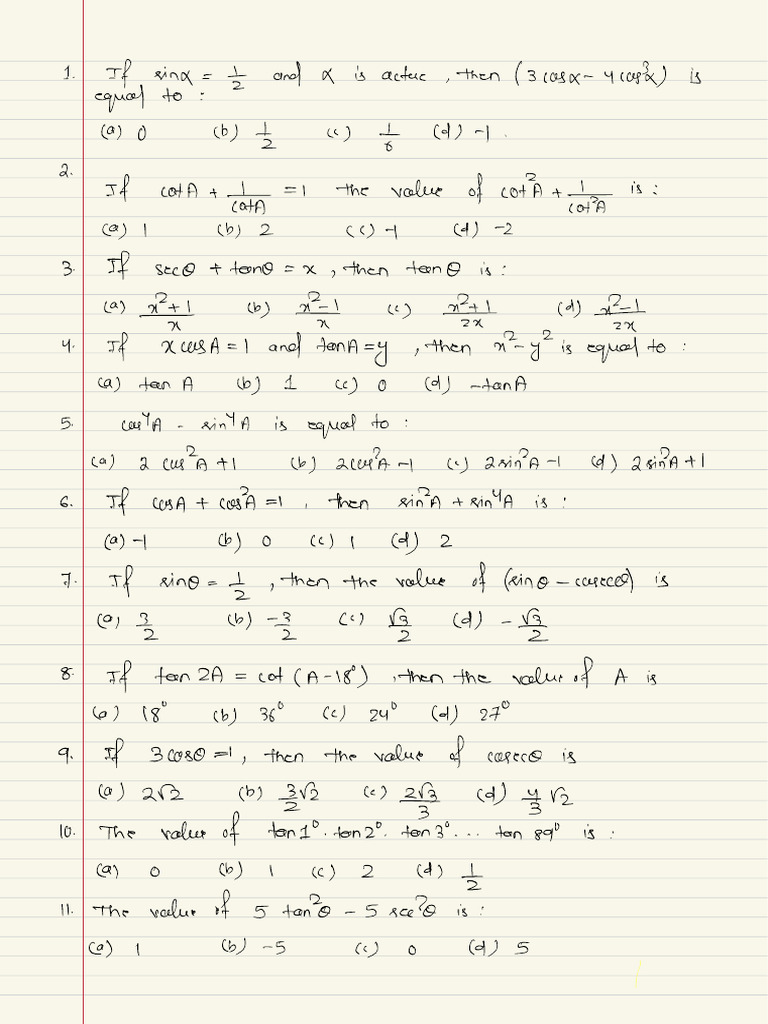 1. If sinα = 1/2 and α is acute, then (3 cosα - 4 cos³α) is
equal to :
(a) 0 (b) 1/2 (c) 1/6 (d) -1.
2.
If cotA + 1/cotA = 1 the value of cot²A + 1/cot²A is :
(a) 1 (b) 2 (c) -1 (d) -2
3. If secθ + tanθ = x, then tanθ is :
(a) x²+1/x (b) x²-1/x (c) x²+1/2x (d) x²-1/2x
4. If x cosA = 1 and tanA = y, then x² - y² is equal to :
(a) tan A (b) 1 (c) 0 (d) -tanA
5. cos⁴A - sin⁴A is equal to :
(a) 2 cos²A + 1 (b) 2cos²A - 1 (c) 2sin²A - 1 (d) 2sin²A + 1
6. If cosA + cos²A = 1, then sin²A + sin⁴A is :
(a) -1 (b) 0 (c) 1 (d) 2
7. If sinθ = 1/2, then the value of (sinθ - cosecθ) is
(a) 3/2 (b) -3/2 (c) √3/2 (d) -√3/2
8. If tan 2A = cot (A-18°), then the value of A is
(a) 18° (b) 36° (c) 24° (d) 27°
9. If 3 cosθ = 1, then the value of cosecθ is
(a) 2√2 (b) 3/2 √2 (c) 2√3/3 (d) 4/3 √2
10. The value of tan 1°. tan 2°. tan 3°... tan 89° is :
(a) 0 (b) 1 (c) 2 (d) 1/2
11. The value of 5 tan²θ - 5 sec²θ is :
(a) 1 (b) -5 (c) 0 (d) 5